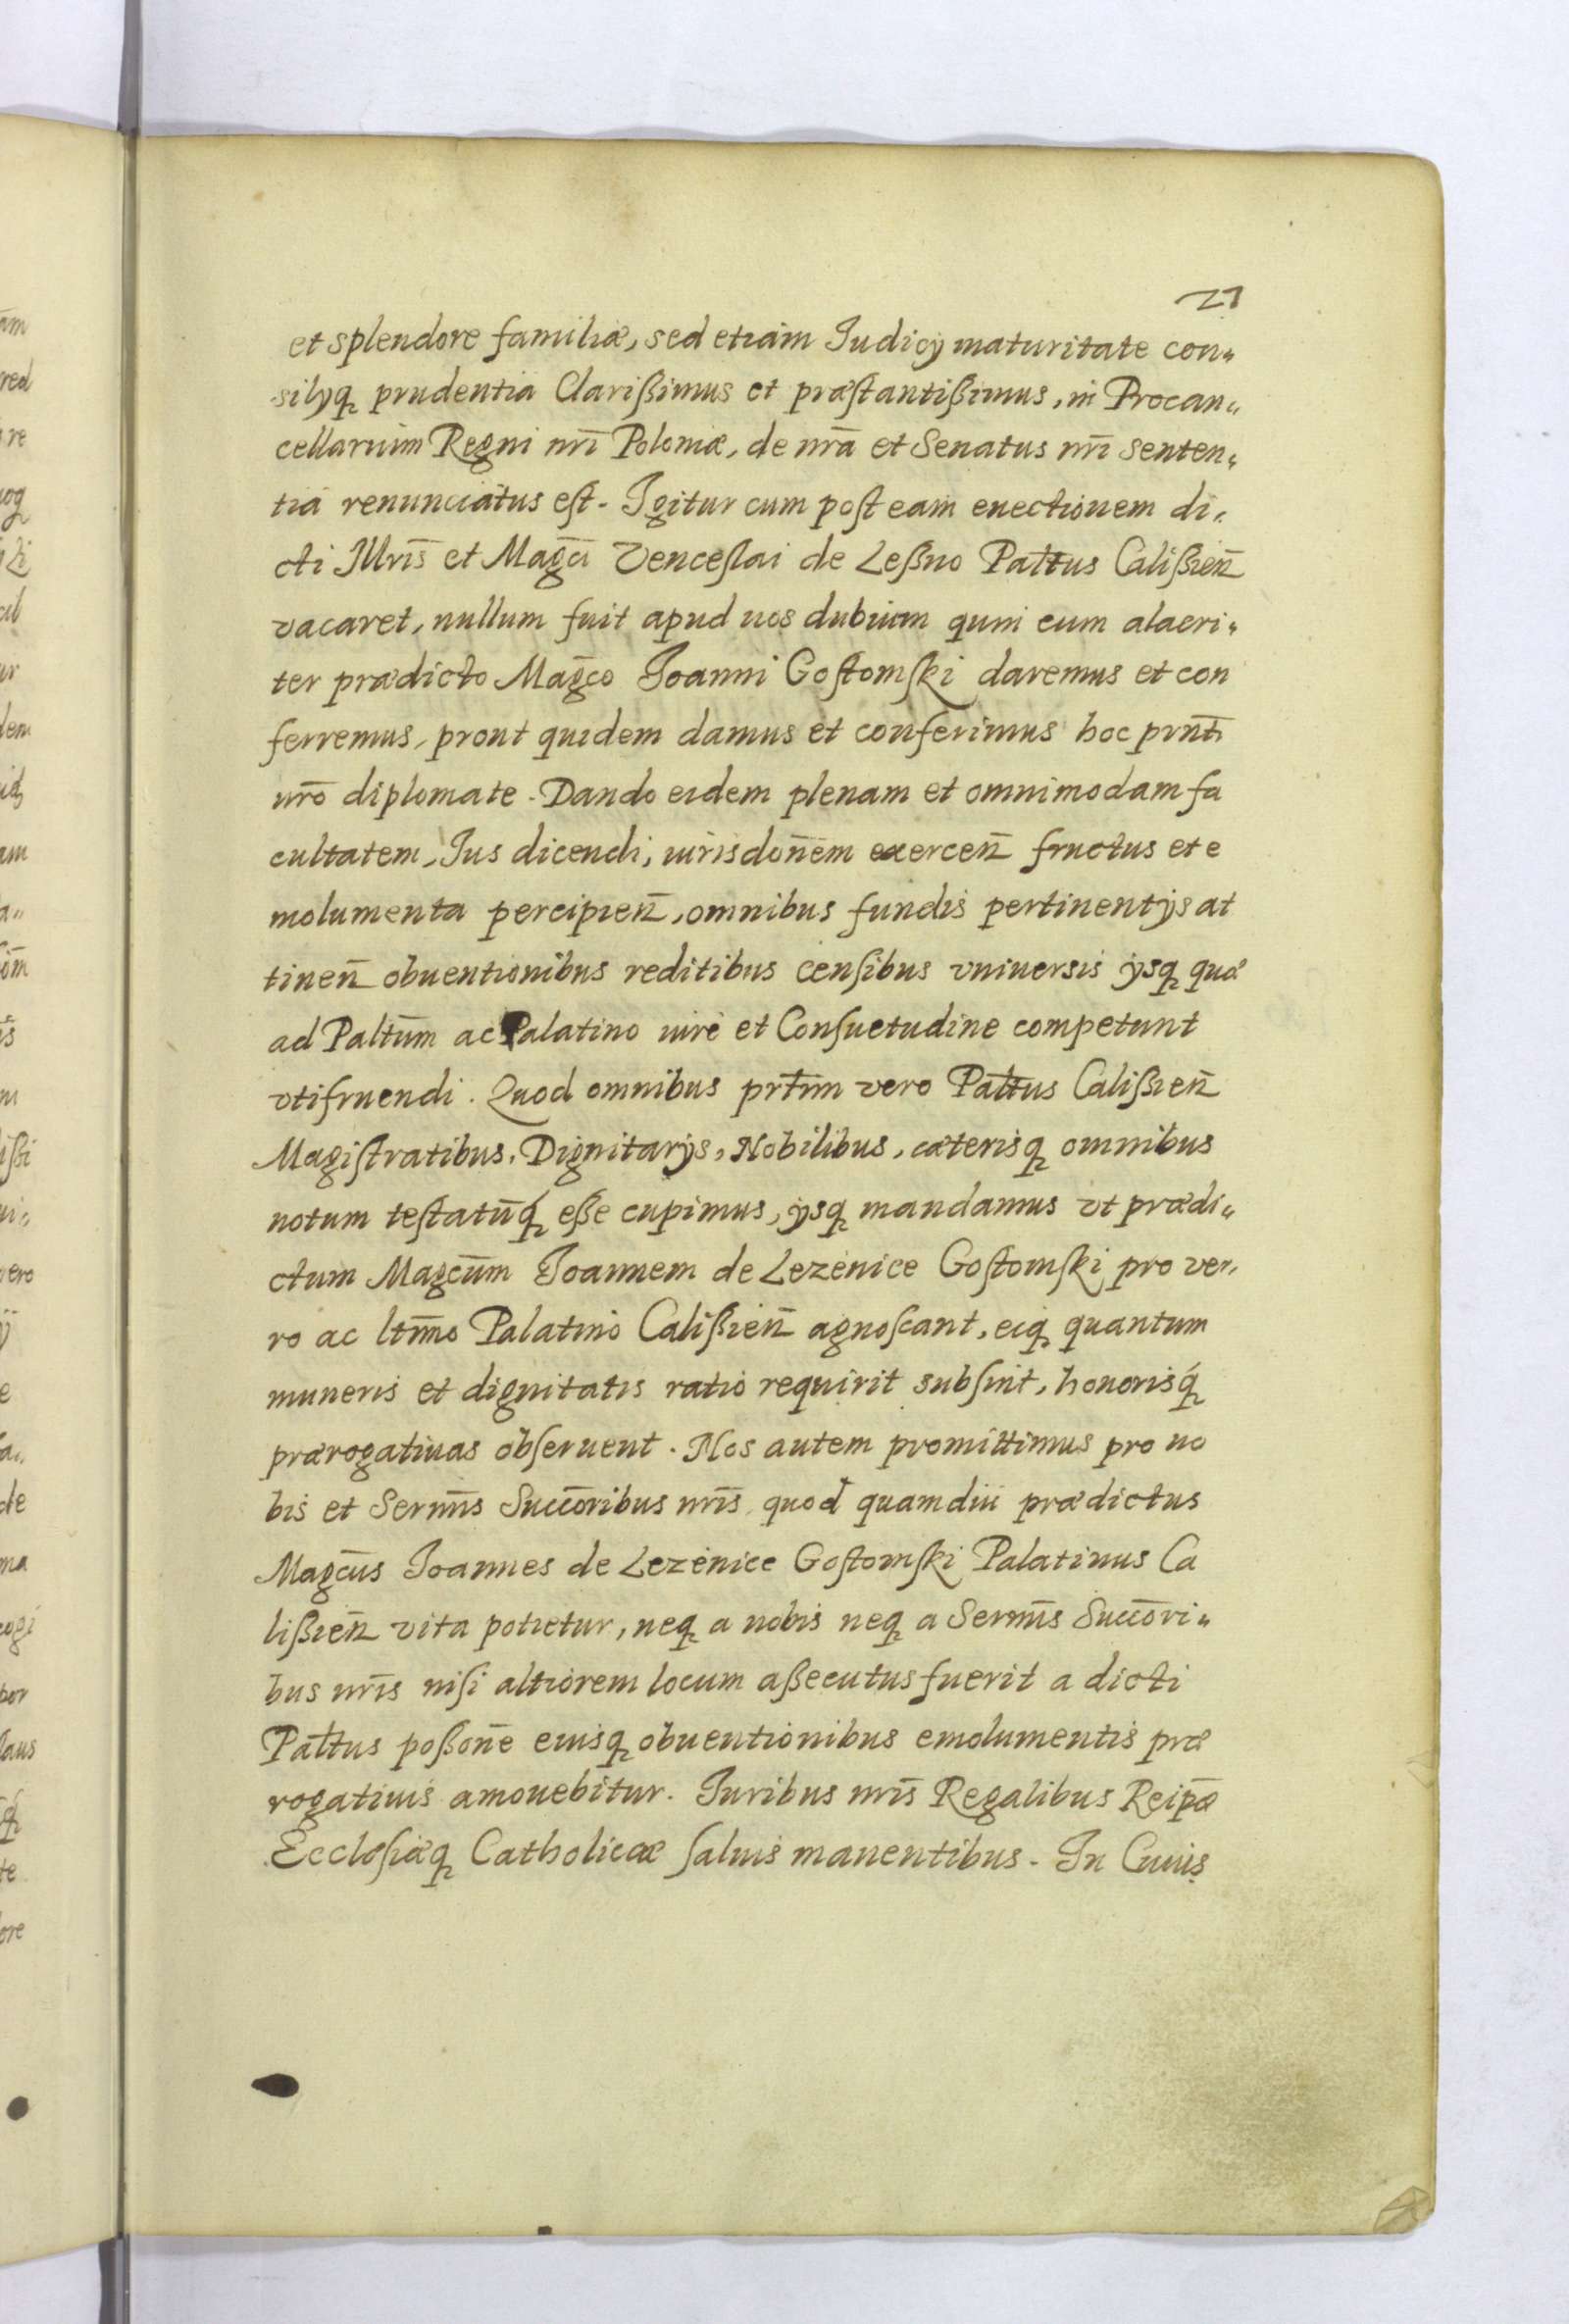 21
et splendore familiæ, sed etiam Iudicÿ maturitate con„
silÿq prudentia Clarißimus et præstantißimus, in Procan„
cellarium Regni nrĩ Poloniæ, de nrã et Senatus nrĩ senten„
tia renunciatus est. Igitur cum post eam euectionem di„
cti Illrĩs et Magc̃i Venceslai de Leßno Paltus Calißien̄
vacaret, nullum fuit apud nos dubium quin eum alacri„
ter prædicto Magc̃o Ioanni Gostomski daremus et con
ferremus, prout quidem damus et conferimus hoc prnt̃i
nrõ diplomate. Dando eidem plenam et omnimodam fa
cultatem, Ius dicendi, iurisdoñem exercen̄ fructus et e
molumenta percipien̄, omnibus fundis pertinentÿs at
tinen̄ obuentionibus reditibus censibus vniuersis ÿsq quæ
ad Palt̃um ac Palatino iure et Consuetudine competunt
vtifruendi. Quod omnibus prt̃im vero Paltus Calißien̄
Magistratibus, Dignitarÿs, Nobilibus, cæterisq omnibus
notum testatũq eße cupimus, ÿsq mandamus vt prædi„
ctum Magc̃um Ioannem de Lezenice Gostomski pro ve„
ro ac ltm̃o Palatino Calißien̄ agnoscant, eiq quantum
muneris et dignitatis ratio requirit subsint, honorisq
prærogatiuas obseruent. Nos autem promittimus pro no
bis et Serm̃is Succõribus nrĩs quod quamdiu prædictus
Magc̃us Ioannes de Lezenice Gostomski Palatinus Ca
lißien̄ vita potietur, neq a nobis neq a Serm̃is Succõri„
bus nrĩs nisi altiorem locum aßecutus fuerit a dicti
Paltus poßoñe eiusq obuentionibus emolumentis præ
rogatiuis amouebitur. Iuribus nrĩs Regalibus Reip̃æ
Ecclesiæq Catholicæ saluis manentibus. In Cuius